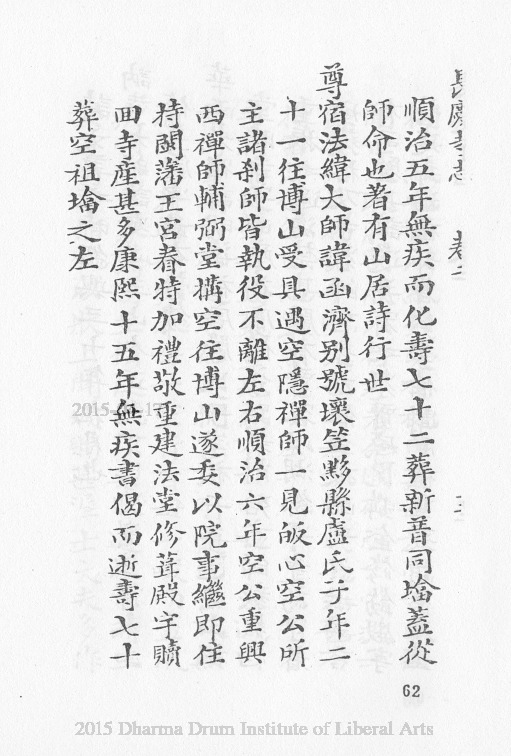 長慶寺志 卷二
順治五年無疾而化壽七十二葬新普同墖蓋從
師命也著有山居詩行世
尊宿法緯大師諱函濟别號壞笠黟縣盧氏子年二
十一往博山受具遇空隱禪師一見皈心空公所
主諸刹師皆執役不離左右順治六年空公重興
西禪師輔弼堂搆空往博山遂委以院事繼即住
持閩藩王宮眷特加禮敬重建法堂修葺殿宇贖
回寺産甚多康熙十五年無疾書偈而逝壽七十
葬空祖墖之左
62
2015 Dharma Drum Institute of Liberal Arts